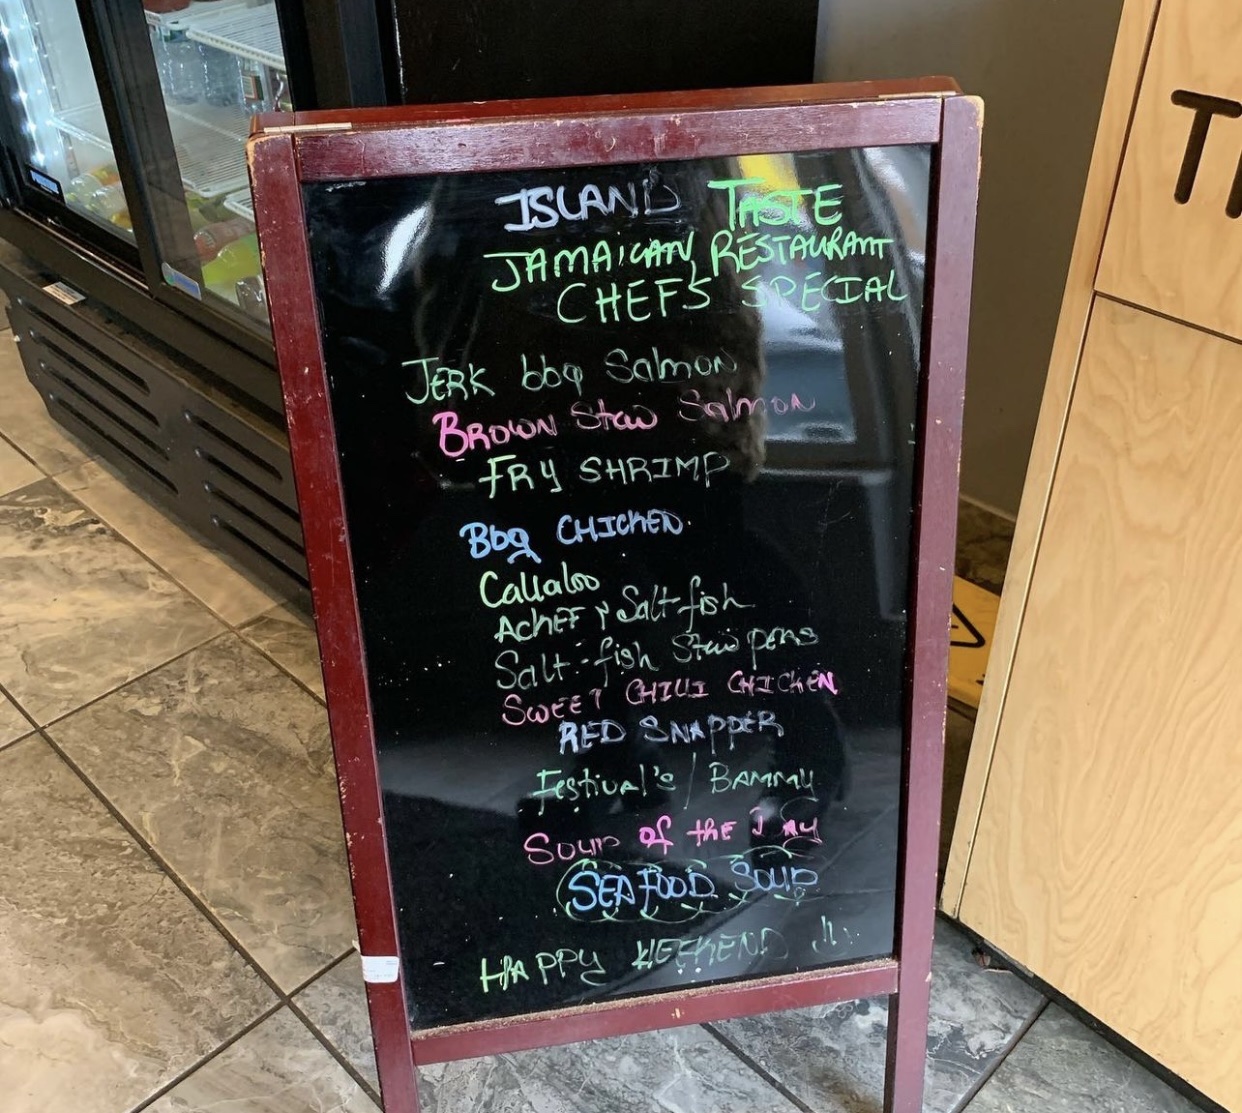 ISLAND TASTE
JAMAiCAN RESTAURANT
CHEF'S SPECIAL
JERK bbq Salmon
BROWN Stew Salmon
FRY SHRIMP
Bbq CHICKEN
Callaloo
ACKEE & Salt-fish
Salt-fish Stew peas
SWEET CHILLI CHICKEN
RED SNAPPER
Festival's / BAMMY
Soup of the DAY
SEAFOOD Soup
HAPPY WEEKEND !!